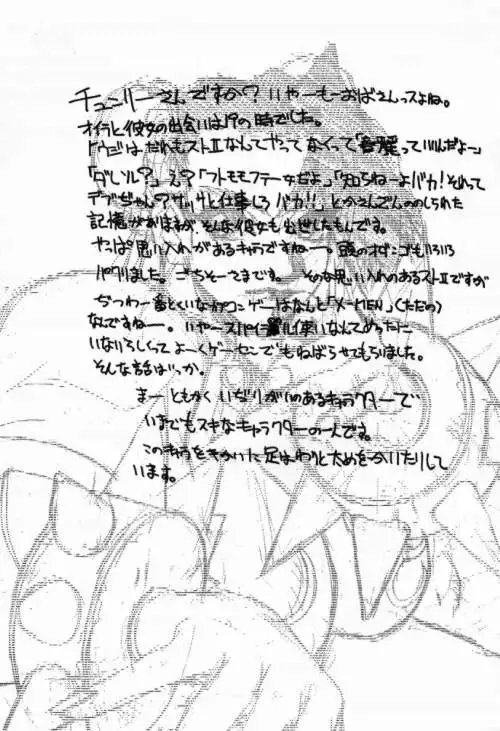 チュンリーさんですか？いやーもーおばさんっスよね。
オイラと彼女の出会いは19の時でした。
トウジはだれもストⅡなんてやってなくって「春麗っていいんだよー」
「ダレソレ？」え？「フトモモフテー女だよ」「知らねーよバカ！それって
デブじゃん？サッサと仕事しろバカ！！」とかさんざんののしられた
記憶がありますが、そんな彼女も出世したもんです。
やっぱ思い入れがあるキャラですねー。頭のオダンゴもいろいろ
パクりました。ごちそーさまです。その思い入れのあるストⅡですが
じつわ一番とくいなカプコンゲーはなんと「X-MEN」(ただの)
なんですねー。いやースパイラル使いなんてめったに
いないらしくってよーくゲーセンでもねばらせてもらいました。
そんな話はいっか。
まーともかくいぢりがいのあるキャラクターで
いまでもスキなキャラクターの一人です。
このキャラをきっかけに足はわりと太めをかいたりして
います。